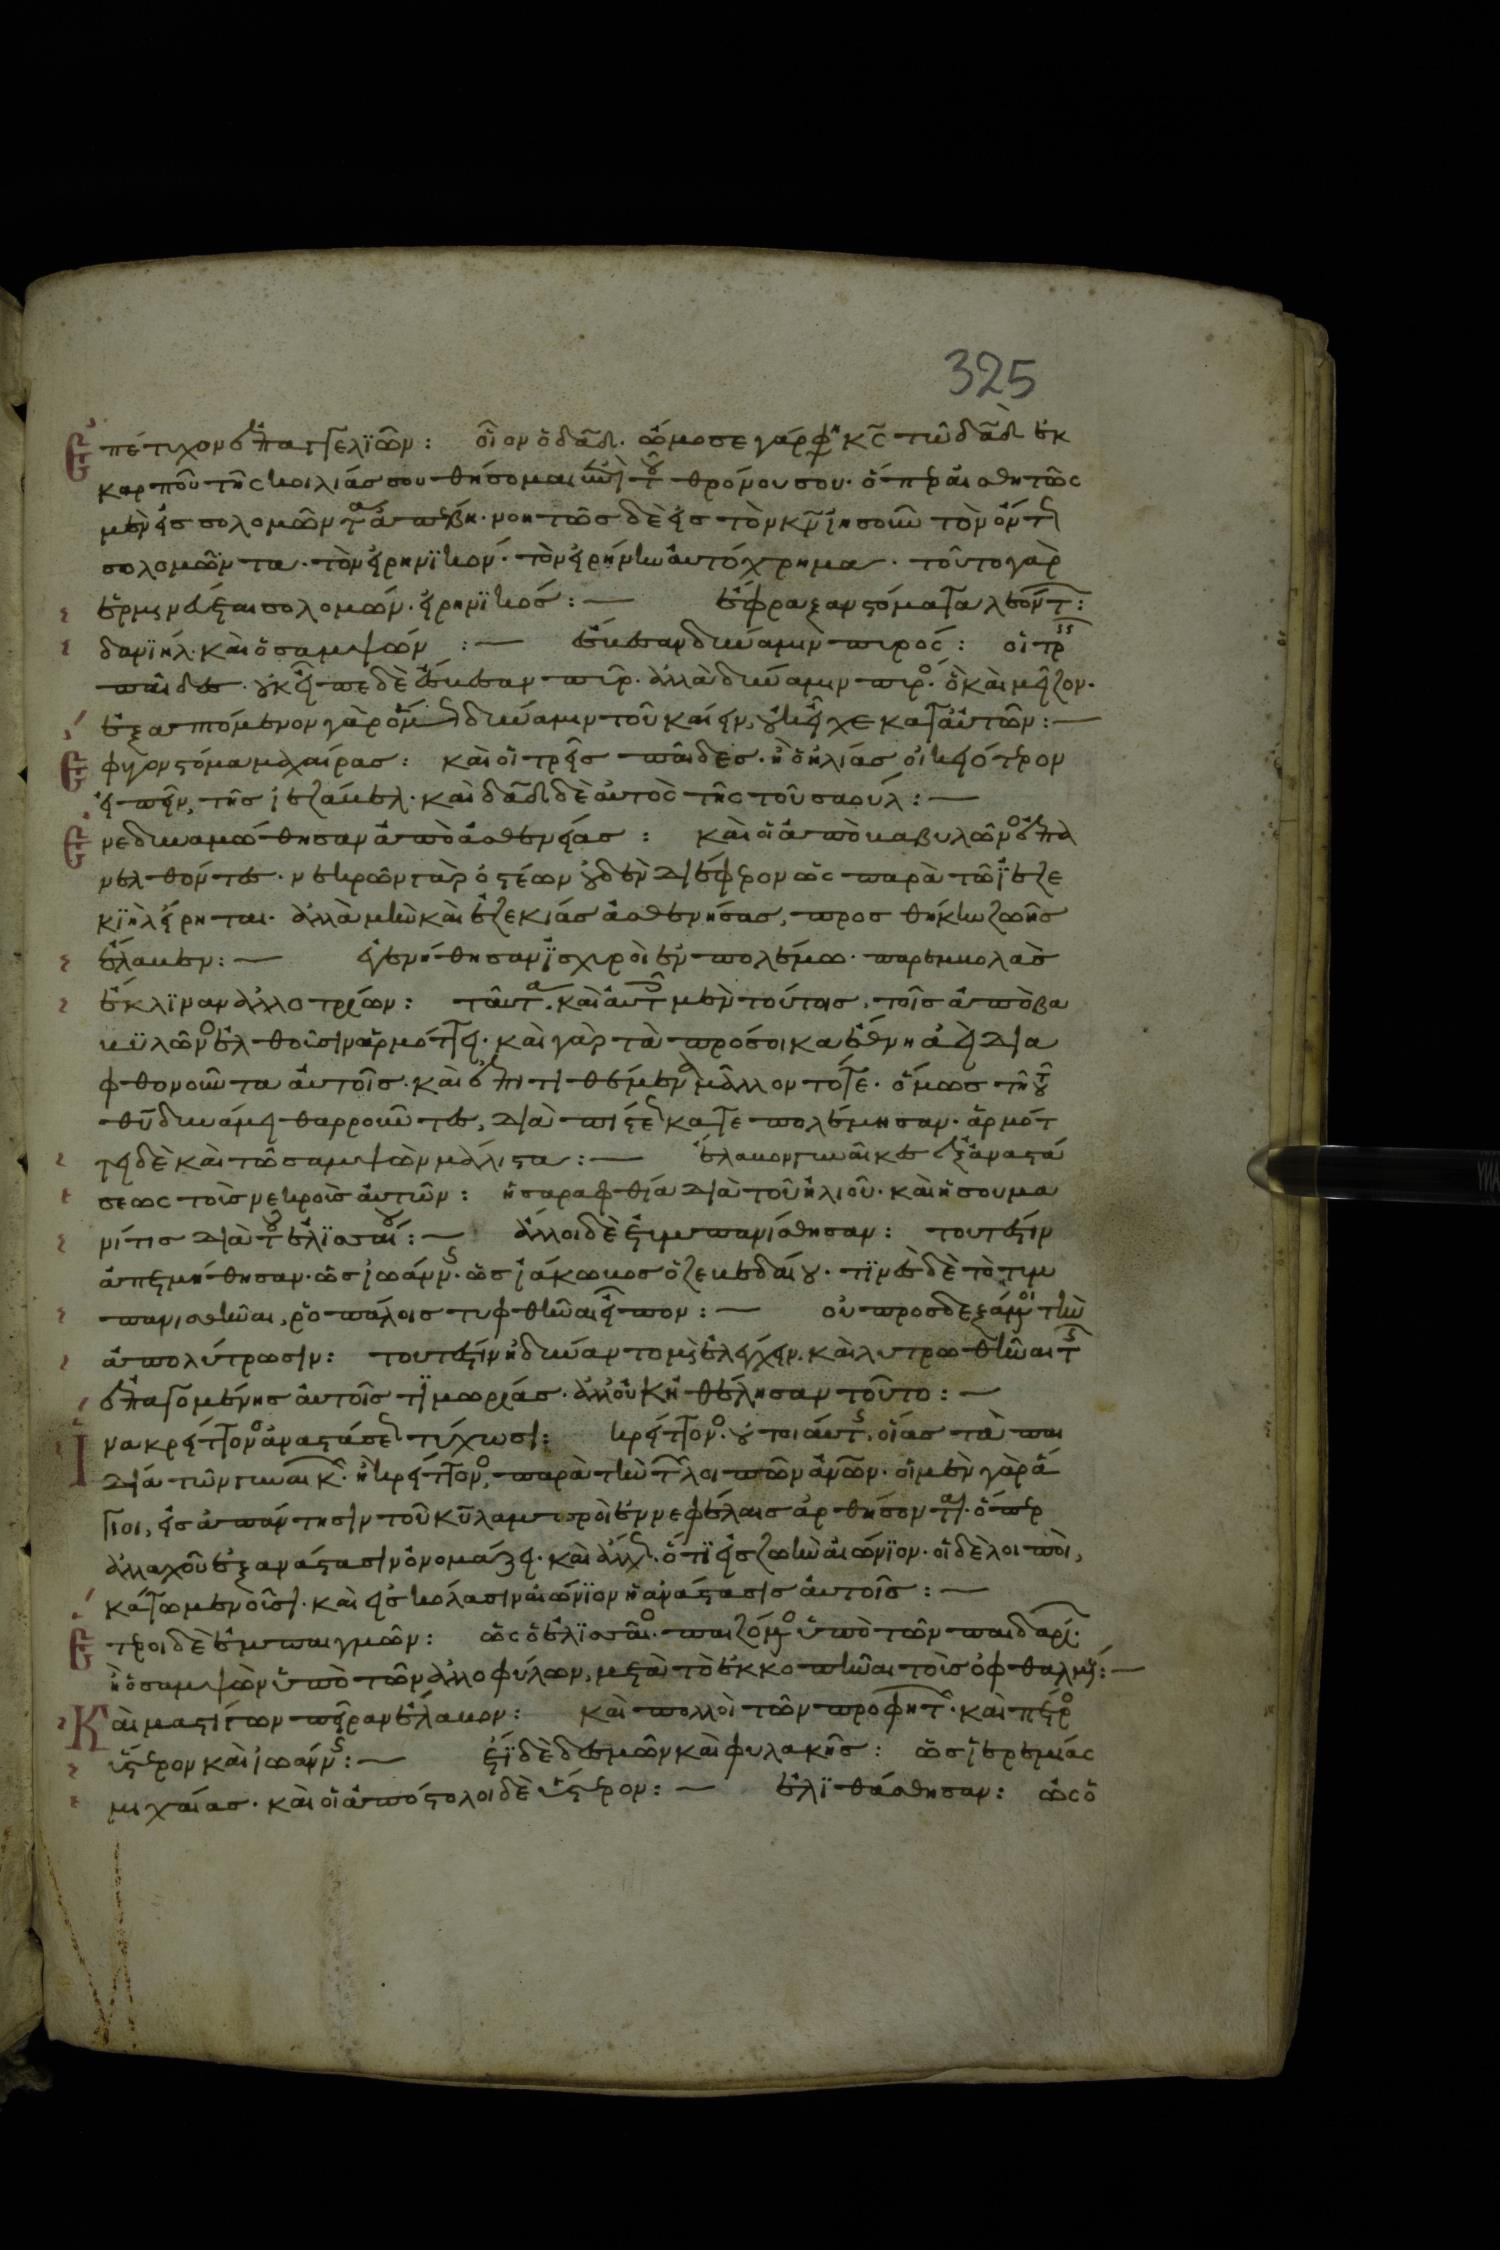 325
Ἐπέτυχον ἐπαγγελιῶν: οἷον ὁ δα̅δ. ὤμοσε γάρ φη κς̅ τῶ δα̅δ ἐκ
καρποῦ τῆς κοιλίας σου θήσομαι ἐπὶ τοῦ θρόνου σου. ὅπερ αἰσθητῶς
μὲν εἰς σολομῶντα ἀπέβη. νοητῶς δὲ εἰς τὸν κν̅ ἰησοῦν τὸν ὄντως
σολομῶντα. τὸν εἰρηνικόν. τὸν εἰρήνην αὐτόχρημα. τοῦτο γὰρ
ἑρμηνεύεται σολομών. εἰρηνικός: ἔφραξαν στόματα λεόντων:
δανιὴλ. καὶ ὁ σαμψών: ἔσβεσαν δύναμιν πυρός: οἱ τρεῖς
παῖδες. οὐκ εἶπε δὲ ἔσβεσαν πῦρ. ἀλλὰ δύναμιν πυρός. ὃ καὶ μεῖζον.
ἐξαπτόμενον γὰρ ὅμως δύναμιν τοῦ καίειν, οὐκ εἶχε κατ' αὐτῶν:
Ἔφυγον στόμα μαχαίρας: καὶ οἱ τρεῖς παῖδες. ἢ ὁ ἠλίας οἰκειότερον
εἰπεῖν, τῆς ἰεζάβελ. καὶ δα̅δ δὲ αὐτὸς τῆς τοῦ σαούλ:
Ἐνεδυναμώθησαν ἀπὸ ἀσθενείας: καὶ οἱ ἀπὸ βαβυλῶνος ἐπα
νελθόντες. νεκρῶν γὰρ ὀστέων οὐδὲν διέφερον ὡς παρὰ τῶ ἰεζε
κιὴλ εἴρηται. ἀλλὰ μὴν καὶ ἐζεκίας ἀσθενήσας, προσθήκην ζωῆς
ἔλαβεν: ἐγενήθησαν ἰσχυροὶ ἐν πολέμω. παρεμβολὰς
ἔκλιναν ἀλλοτρίων: ταῦτα καὶ αὐτὰ μὲν τούτοις, τοῖς ἀπὸ βα
βυλῶνος ἐλθοῦσιν ἁρμόττει. καὶ γὰρ τὰ πρόσοικα ἔθνη ἀεὶ δια
φθονοῦντα αὐτοῖς. καὶ ἐπιτιθέμενα μᾶλλον τότε. ὅμως τῆ τοῦ
θυ̅ δυνάμει θαρροῦντες, διὰ πίστεως κατεπολέμησαν. ἁρμότ
τει δὲ καὶ τῶ σαμψὼν μάλιστα: ἔλαβον γυναῖκες ἐξ ἀναστά
σεως τοὺς νεκροὺς αὐτῶν: ἡ σαραφθία διὰ τοῦ ἡλιοῦ. καὶ ἡ σουμα
νίτις διὰ τοῦ ἐλισσαιου: ἄλλοι δὲ ἐτυμπανίσθησαν: τουτέστιν
ἀπετμήθησαν. ὡς ἰωάννης. ὡς ἰάκωβος ὁ ζεβεδαίου. τινὲς δὲ τὸ τυμ
πανισθῆναι, ῥοπάλοις τυφθῆναι εἶπον: οὐ προσδεξάμενοι τὴν
ἀπολύτρωσιν: τουτέστιν ἠδύναντο μὴ ἐλέγχειν. καὶ λυτρωθῆναι τῆς
ἐπαγομένης αὐτοῖς τιμωρίας. ἀλλ' οὐκ ἠθέλησαν τοῦτο:
Ἵνα κρείττονος ἀναστάσεως τύχωσι: κρείττονος. οὐ τοιαύτης, οἵας τὰ παι
δία τῶν γυναικῶν. ἢ κρείττονος, παρὰ τὴν τῶν λοιπῶν ἀνων̅. οἱ μὲν γὰρ ἅ
γιοι, εἰς ἀπάντησιν τοῦ κυ̅ λαμπροὶ ἐν νεφέλαις ἀρθήσονται. ὅπερ
ἀλλαχοῦ ἐξανάστασιν ὀνομάζει. καὶ ἄλλως. ὅτι εἰς ζωὴν αἰώνιον. οἱ δὲ λοιποὶ,
κάτω μένουσι. καὶ εἰς κόλασιν αἰώνιον ἡ ἀνάστασις αὐτοῖς:
Ἕτεροι δὲ ἐμπαιγμῶν: ὡς ὁ ἐλισσαῖος. παιζόμενος ὑπὸ τῶν παιδαρίων.
ἢ ὁ σαμψὼν ὑπὸ τῶν ἀλλοφύλων, μετὰ τὸ ἐκκοπῆναι τοὺς ὀφθαλμούς:
Καὶ μαστίγων πεῖραν ἔλαβον: καὶ πολλοὶ τῶν προφητῶν. καὶ πέτρος
ὕστερον καὶ ἰωάννης: ἔτι δὲ δεσμῶν καὶ φυλακῆς: ὡς ἱερεμίας
μιχαίας. καὶ οἱ ἀπόστολοι δὲ ὕστερον: ἐλιθάσθησαν: ὡς ὁ